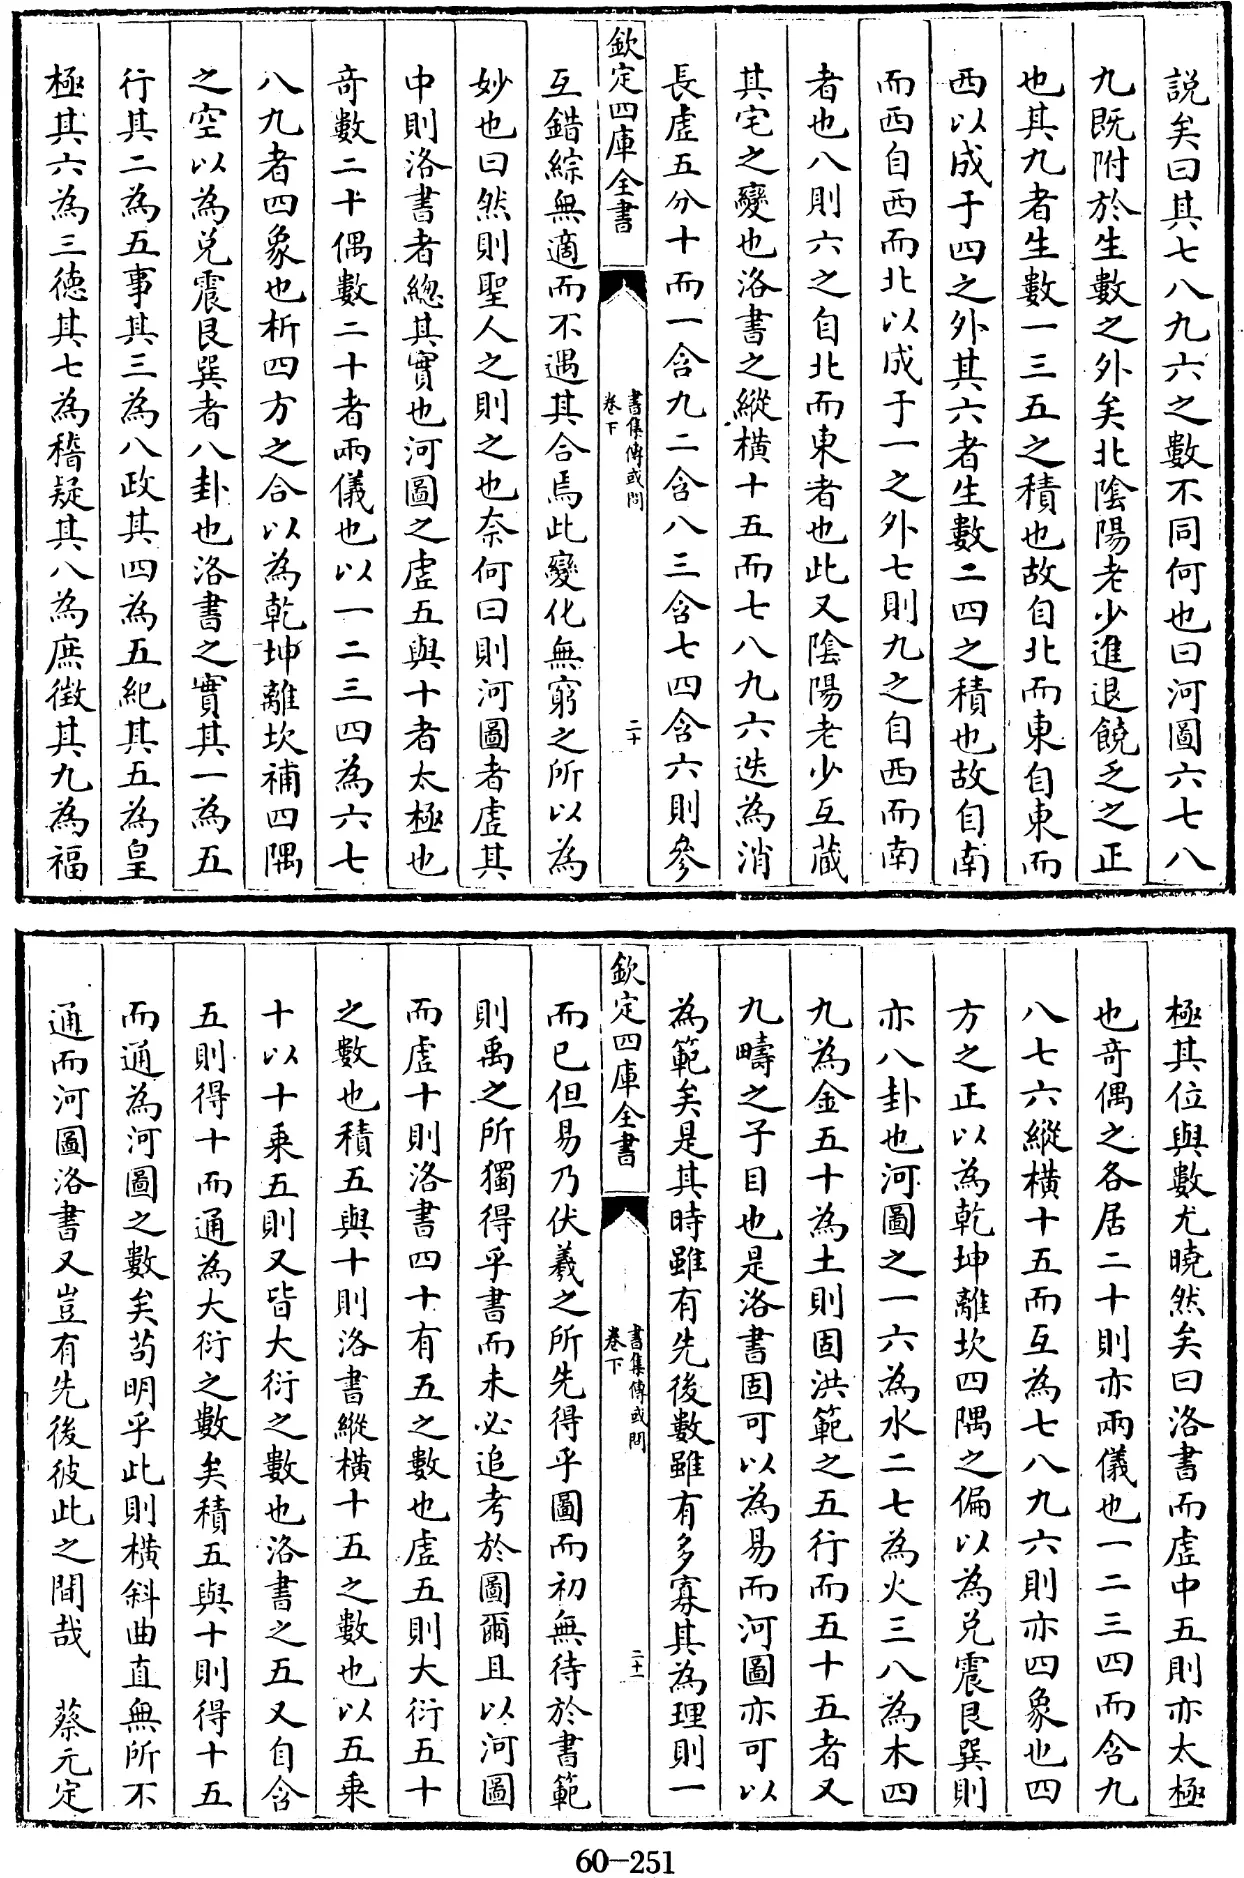 說矣曰其七八九六之數不同何也曰河圖六七八
九既附於生數之外矣北陰陽老少進退饒乏之正
也其九者生數一三五之積也故自北而東自東而
西以成于四之外其六者生數二四之積也故自南
而西自西而北以成于一之外七則九之自西而南
者也八則六之自北而東者也此又陰陽老少互蔵
其宅之變也洛書之縱橫十五而七八九六迭為消
長虛五分十而一含九二含八三含七四含六則參
欽定四庫全書
書集傳或問
卷下
二十
互錯綜無適而不遇其合焉此變化無窮之所以為
妙也曰然則聖人之則之也奈何曰則河圖者虛其
中則洛書者總其實也河圖之虛五與十者太極也
奇數二十偶數二十者兩儀也以一二三四為六七
八九者四象也析四方之合以為乾坤離坎補四隅
之空以為兌震艮巽者八卦也洛書之實其一為五
行其二為五事其三為八政其四為五紀其五為皇
極其六為三德其七為稽疑其八為庶徵其九為福
極其位與數尤曉然矣曰洛書而虛中五則亦太極
也奇偶之各居二十則亦兩儀也一二三四而含九
八七六縱橫十五而互為七八九六則亦四象也四
方之正以為乾坤離坎四隅之偏以為兌震艮巽則
亦八卦也河圖之一六為水二七為火三八為木四
九為金五十為土則固洪範之五行而五十五者又
九疇之子目也是洛書固可以為易而河圖亦可以
為範矣是其時雖有先後數雖有多寡其為理則一
欽定四庫全書
書集傳或問
卷下
二十一
而已但易乃伏羲之所先得乎圖而初無待於書範
則禹之所獨得乎書而未必追考於圖爾且以河圖
而虛十則洛書四十有五之數也虛五則大衍五十
之數也積五與十則洛書縱橫十五之數也以五乗
十以十乗五則又皆大衍之數也洛書之五又自含
五則得十而通為大衍之數矣積五與十則得十五
而通為河圖之數矣苟明乎此則橫斜曲直無所不
通而河圖洛書又豈有先後彼此之間哉　蔡元定
60-251